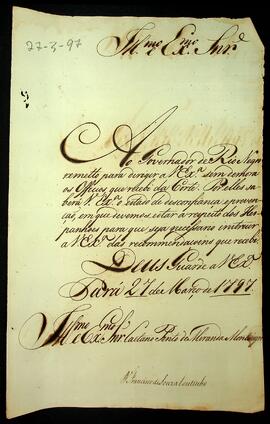 27-3-97
Ill.mo e Ex.mo Snr.
Ao Governador do Rio Negro
remetto para dirigir a V. Ex.ª sem demora
os Officios, que recebi da Corte. Por elles sa-
berá V. Ex.ª o estado de desconfiança, e preven-
ção, em que devemos estar a respeito dos Hes-
panhoes para que seja preciso instruir
a V. Ex.ª das recommendaçoens que recebi.
Deus Guarde a V. Ex.ª
Pará 27 de Março de 1797.
Ill.mo e Ex.mo Snr. Caetano Pinto de Miranda Montenegro
D. Francisco de Souza Coutinho